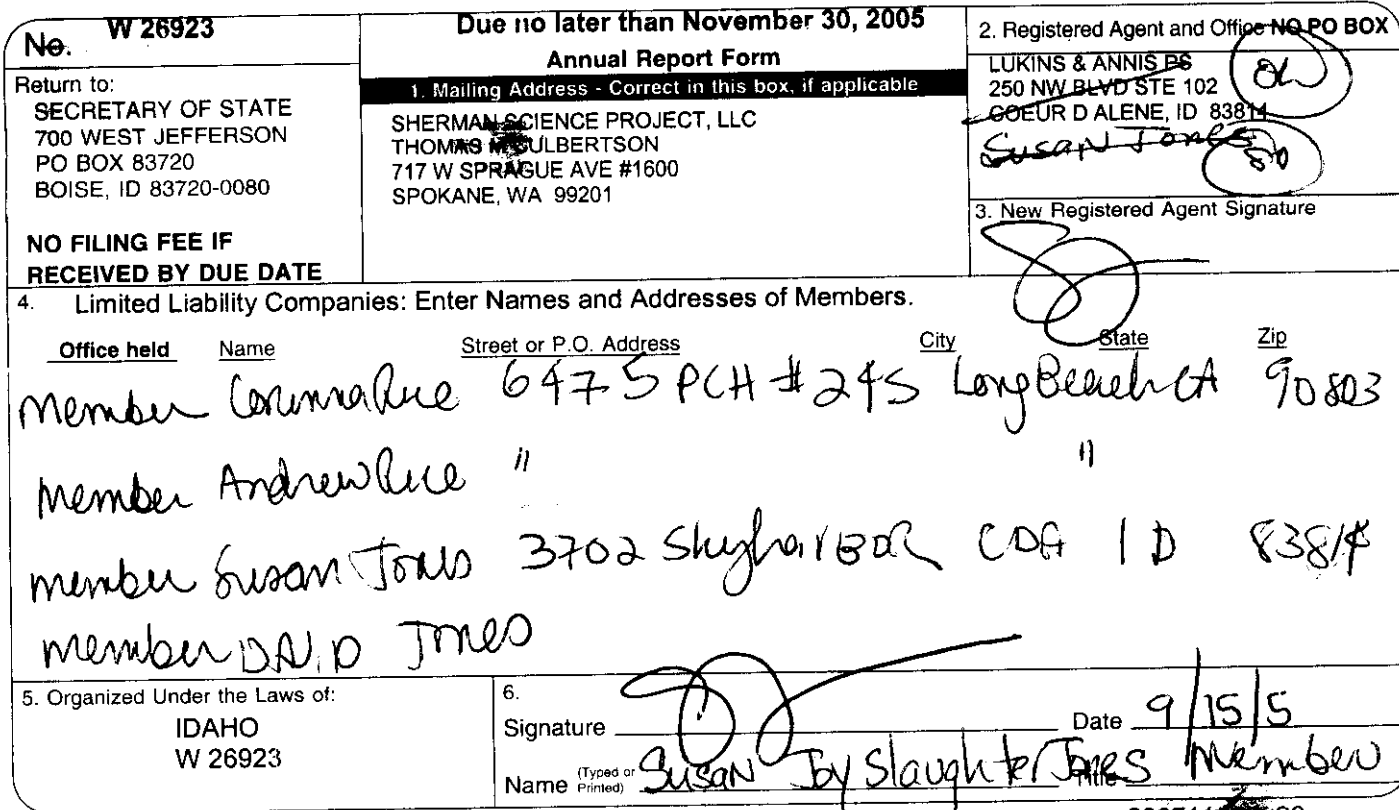 No. W 26923
Return to:
SECRETARY OF STATE
700 WEST JEFFERSON
PO BOX 83720
BOISE, ID 83720-0080
NO FILING FEE IF
RECEIVED BY DUE DATE
Due no later than November 30, 2005
Annual Report Form
1. Mailing Address - Correct in this box, if applicable
SHERMAN SCIENCE PROJECT, LLC
THOMAS M CULBERTSON
717 W SPRAGUE AVE #1600
SPOKANE, WA 99201
2. Registered Agent and Office NO PO BOX
LUKINS & ANNIS PS
250 NW BLVD STE 102
COEUR D ALENE, ID 83814
Susan Jones
3. New Registered Agent Signature
4. Limited Liability Companies: Enter Names and Addresses of Members.
Office held Name Street or P.O. Address City State Zip
Member Corinna Rice 6475 PCH #245 Long Beach CA 90803
Member Andrew Rice " "
Member Susan Jones 3702 Skyharbor CDA ID 83814
Member David Jones
5. Organized Under the Laws of:
IDAHO
W 26923
6.
Signature Date 9/15/5
Name (Typed or Printed) Susan Joy Slaughter Jones Title Member